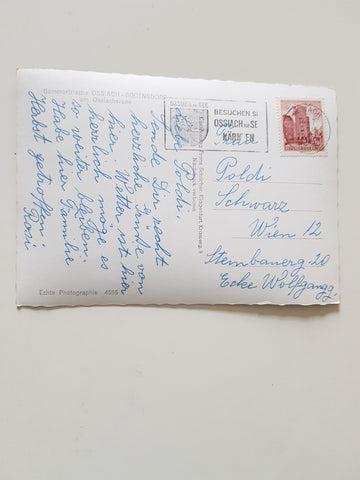 Sommerfrische OSSIACH - BODENSDORF
am Ossiachersee
Liebe Poldi.
Sende Dir recht
herzliche Grüße von
hier. Wetter ist hier
herrlich möge es
so weiter bleiben.
Habe hier Familie
Habst getroffen.
Rosi
Echte Photographie 4555
BESUCHEN SI
OSSIACH AM SE
KÄRN EN
Frau
Poldi
Schwarz
Wien 12
Steinbauerg 20
Ecke Wolfgangg.